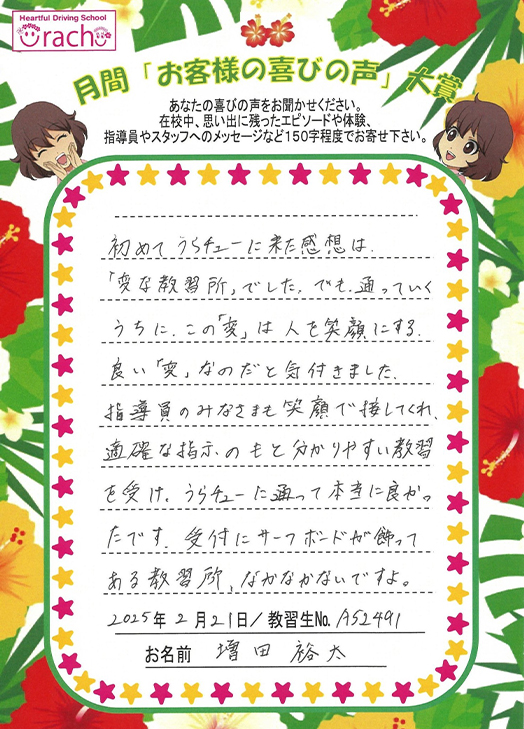 Heartful Driving School
Urachu
月間「お客様の喜びの声」大賞
あなたの喜びの声をお聞かせください。
在校中、思い出に残ったエピソードや体験、
指導員やスタッフへのメッセージなど150字程度でお寄せ下さい。
初めてうらチューに来た感想は、
「変な教習所」でした。でも、通っていく
うちに、この「変」は人を笑顔にする、
良い「変」なのだと気付きました。
指導員のみなさまも笑顔で接してくれ、
適確な指示のもと分かりやすい教習
を受け、うらチューに通って本当に良かっ
たです。受付にサーフボードが飾って
ある教習所、なかなかないですよ。
2025年2月21日/教習生No. A52491
お名前 増田裕太